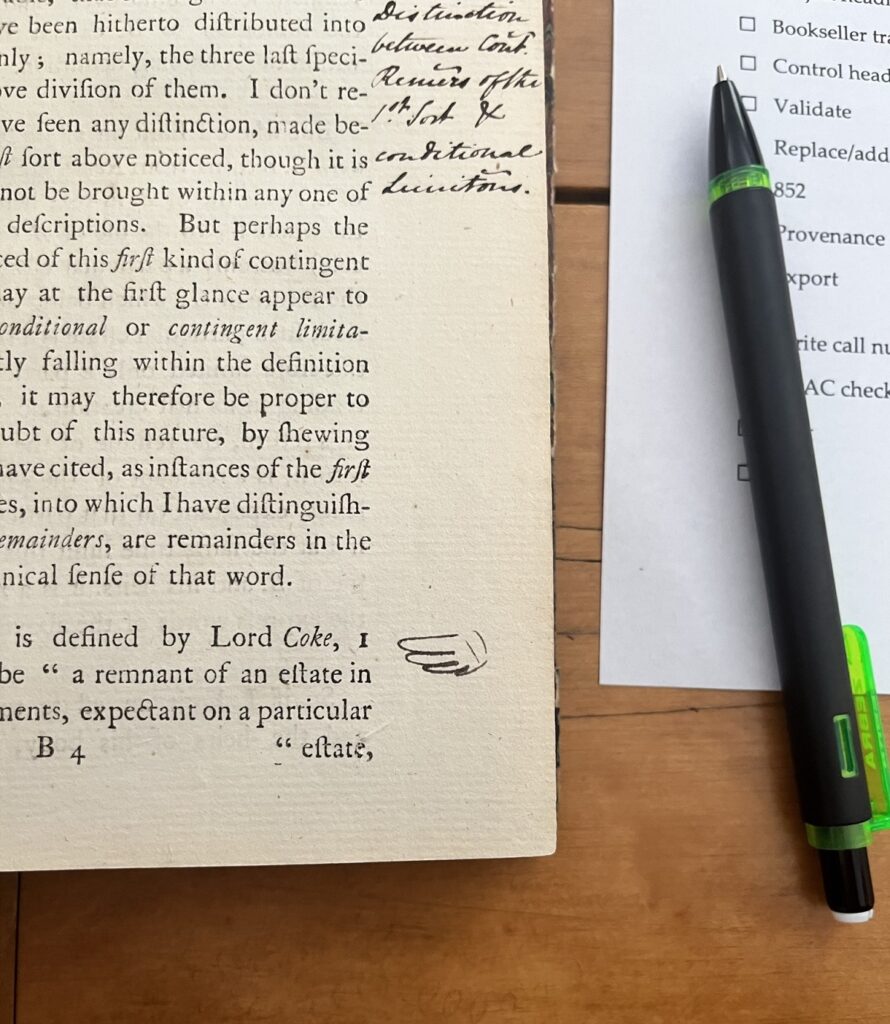 ve been hitherto diſtributed into
nly; namely, the three laſt ſpeci-
ove diviſion of them. I don't re-
ve ſeen any diſtinction, made be-
ſt ſort above noticed, though it is
not be brought within any one of
deſcriptions. But perhaps the
ced of this firſt kind of contingent
ay at the firſt glance appear to
onditional or contingent limita-
tly falling within the definition
, it may therefore be proper to
ubt of this nature, by ſhewing
have cited, as inſtances of the firſt
es, into which I have diſtinguiſh-
emainders, are remainders in the
nical ſenſe of that word.
is defined by Lord Coke, 1
be “ a remnant of an eſtate in
ments, expectant on a particular
B 4 “ eſtate,
Distinction
between Cont.
Remrs of the
1st Sort &
conditional
Limitons.
Bookseller tra
Control head
Validate
Replace/add
852
Provenance
xport
rite call nu
AC check
ZEBRA